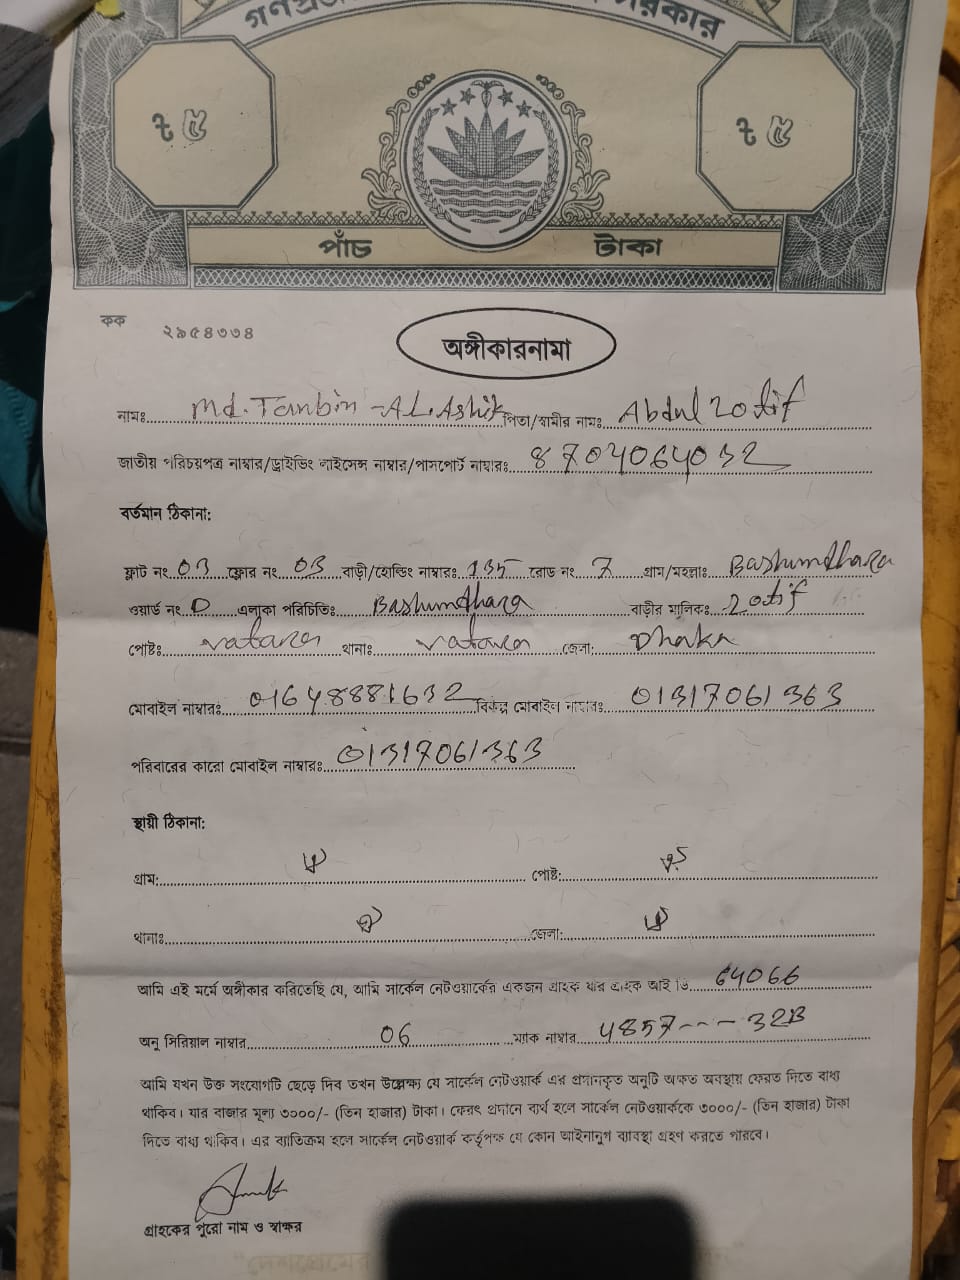 সরকার
৳ ৫ ৳ ৫
পাঁচ টাকা
কক ২৯৫৪৩৩৪
অঙ্গীকারনামা
নামঃ Md. Tanbin -AL. Ashik পিতা/স্বামীর নামঃ Abdul Lotif
জাতীয় পরিচয়পত্র নাম্বার/ড্রাইভিং লাইসেন্স নাম্বার/পাসপোর্ট নাম্বারঃ 8704064032
বর্তমান ঠিকানা:
ফ্লাট নং 03 ফ্লোর নং 03 বাড়ী/হোল্ডিং নাম্বারঃ 135 রোড নং 7 গ্রাম/মহল্লাঃ Bashundhara
ওয়ার্ড নং D এলাকা পরিচিতিঃ Bashundhara বাড়ীর মালিকঃ Lotif
পোষ্টঃ vatara থানাঃ vatara জেলা: Dhaka
মোবাইল নাম্বারঃ 01648881632 বিকল্প মোবাইল নাম্বারঃ 01317061363
পরিবারের কারো মোবাইল নাম্বারঃ 01317061363
স্থায়ী ঠিকানা:
গ্রাম: পোষ্ট:
থানাঃ জেলা:
আমি এই মর্মে অঙ্গীকার করিতেছি যে, আমি সার্কেল নেটওয়ার্কের একজন গ্রাহক যার গ্রাহক আই ডি 64066
অনু সিরিয়াল নাম্বার 06 ম্যাক নাম্বার 4857---32B
আমি যখন উক্ত সংযোগটি ছেড়ে দিব তখন উল্লেক্ষ্য যে সার্কেল নেটওয়ার্ক এর প্রদানকৃত অনুটি অক্ষত অবস্থায় ফেরত দিতে বাধ্য
থাকিব। যার বাজার মূল্য ৩০০০/- (তিন হাজার) টাকা। ফেরৎ প্রদানে ব্যর্থ হলে সার্কেল নেটওয়ার্ককে ৩০০০/- (তিন হাজার) টাকা
দিতে বাধ্য থাকিব। এর ব্যতিক্রম হলে সার্কেল নেটওয়ার্ক কর্তৃপক্ষ যে কোন আইনানুগ ব্যবস্থা গ্রহণ করতে পারবে।
গ্রাহকের পুরো নাম ও স্বাক্ষর